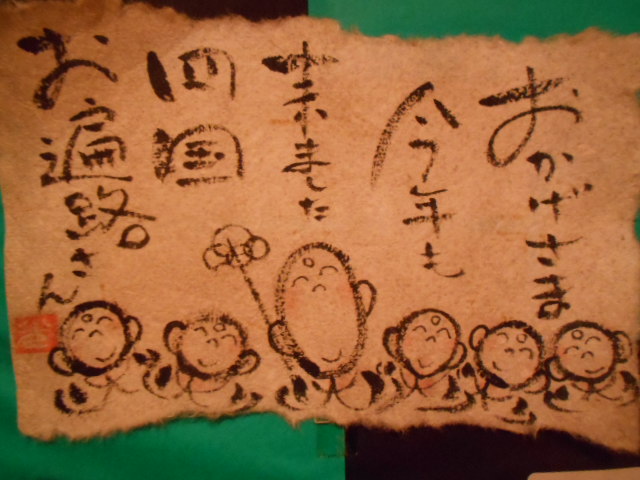 おかげさま
今年も
来ました
四国
お遍路。さん